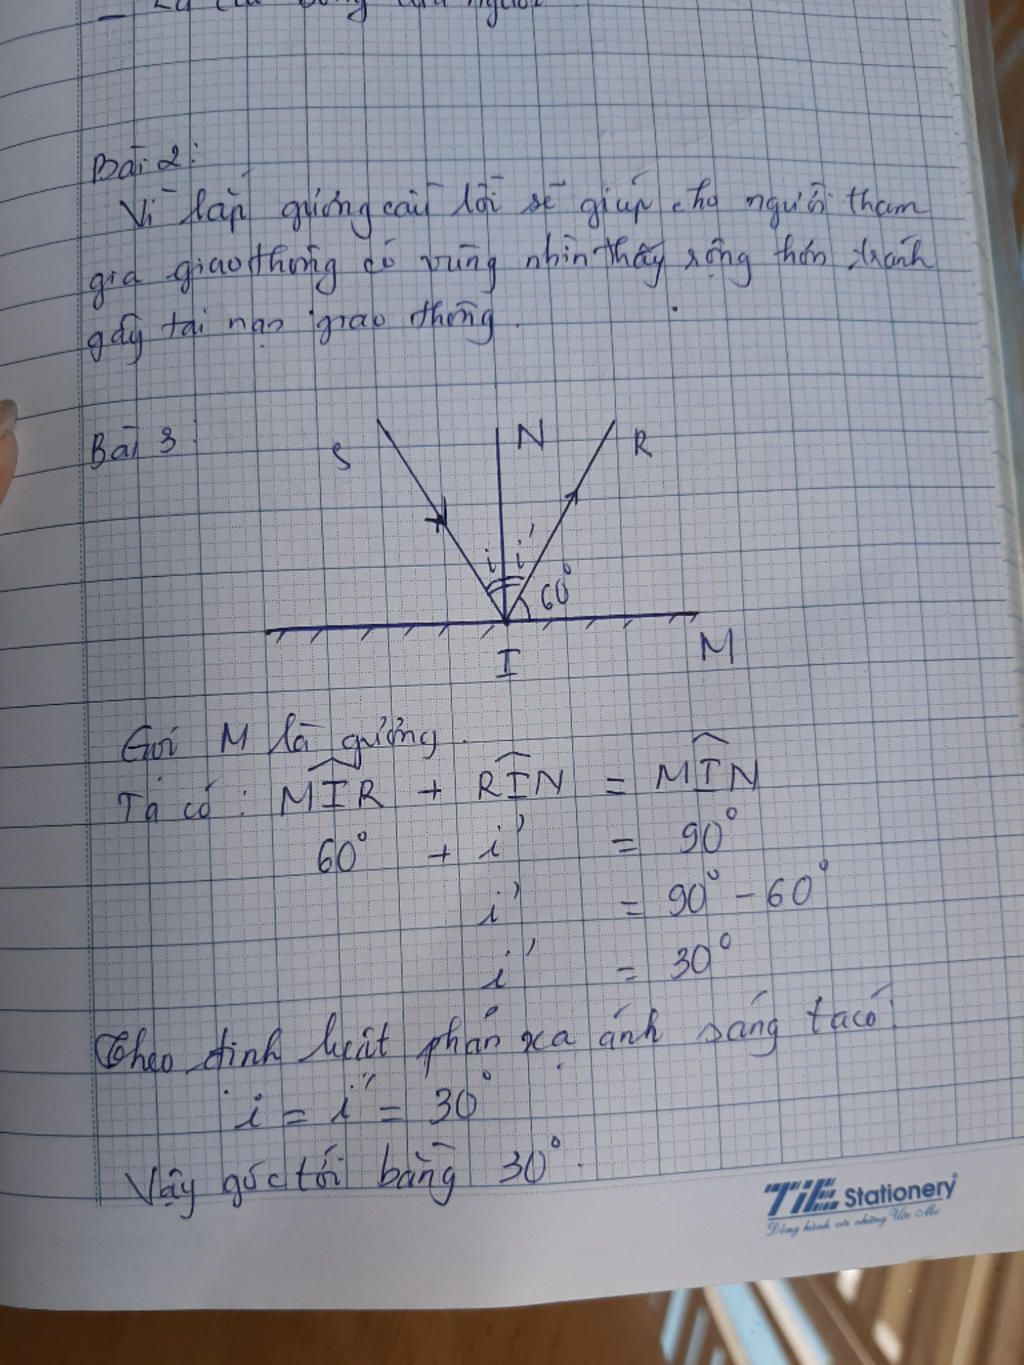 Bài 2:
Vì lắp gương cầu lồi sẽ giúp cho người tham
gia giao thông có vùng nhìn thấy rộng hơn tránh
gây tai nạn giao thông.
Bài 3:
S N R
i i' 60°
I M
Gọi M là gương.
Ta có: MIR + RIN = MIN
60° + i' = 90°
i' = 90° - 60°
i' = 30°
Theo định luật phản xạ ánh sáng ta có:
i = i' = 30°
Vậy góc tới bằng 30°.
TiE Stationery
Đồng hành với những Ước Mơ